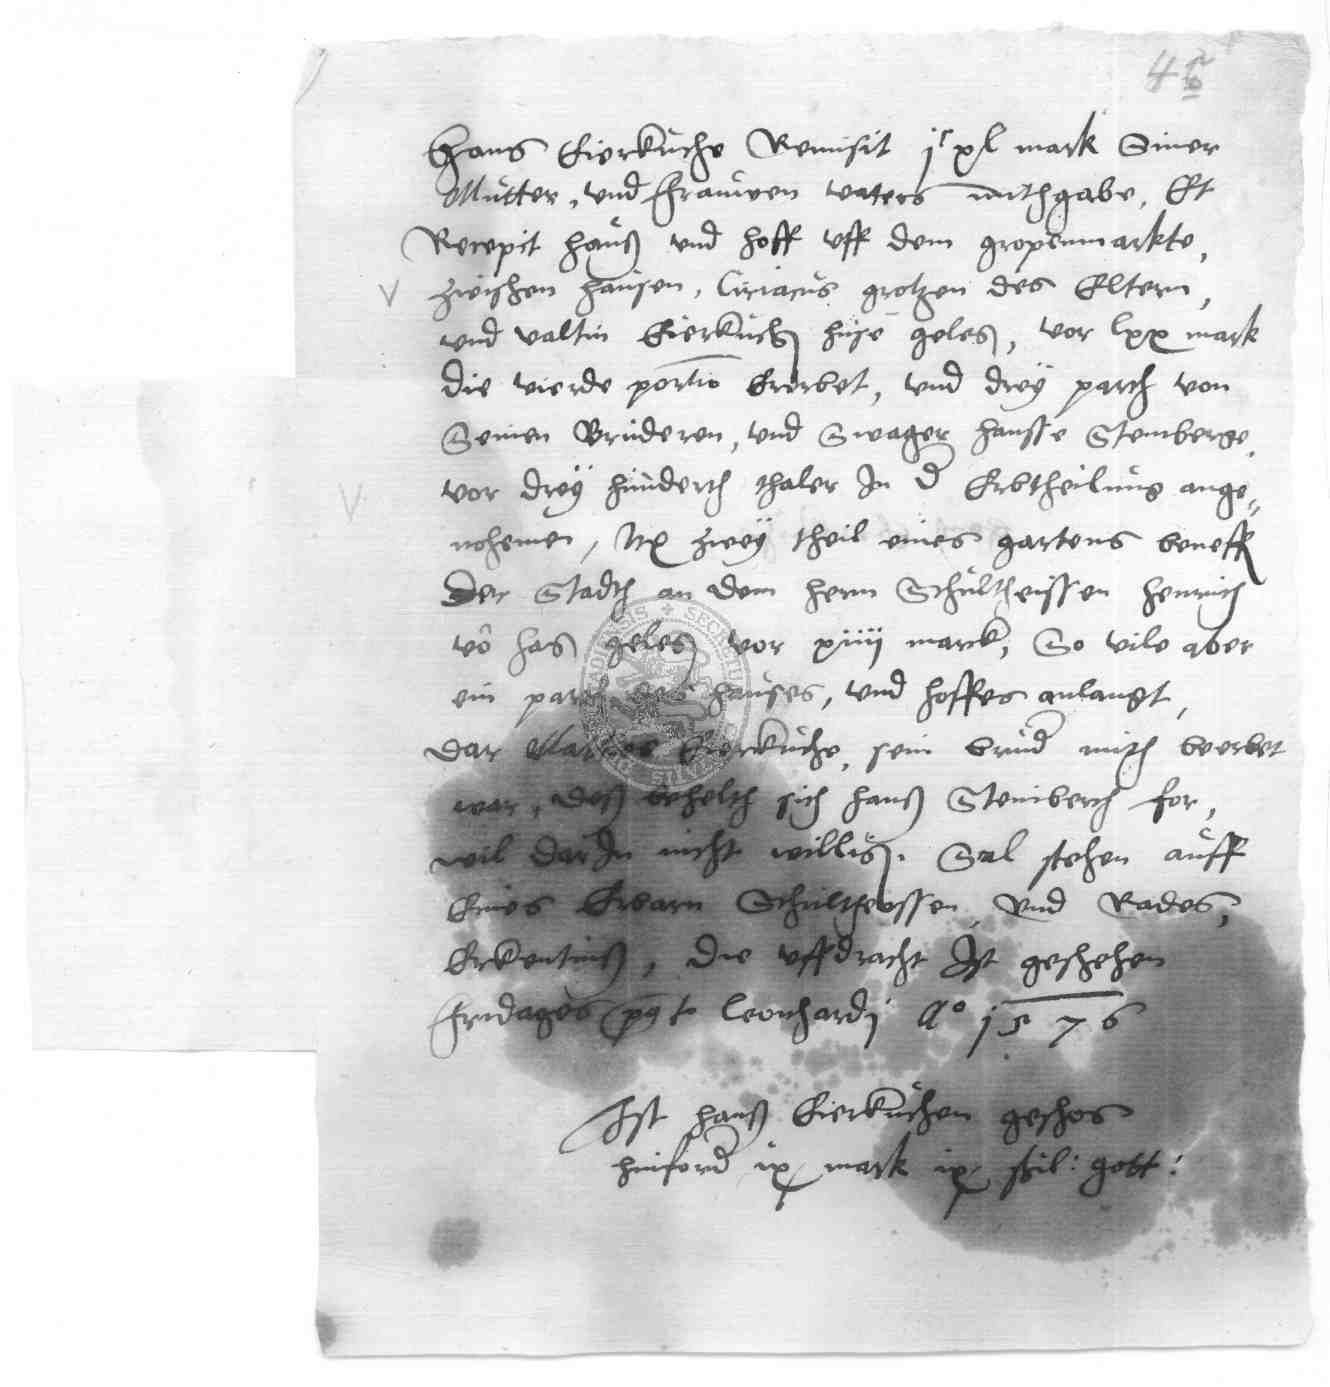 4
Hans Eierkuche Remisit jc xl mark Siner
Mutter, vnd frauwen vaters mithgabe, Et
Recepit hauß vnd hoff vff dem gropenmarkte,
zwischen hausen, Ciriacus grotzen des Eltern,
vnd valtin Eierkuchen huse geleg, vor lxx mark
die vierde portio Ererbet, vnd drey parth von
Seinen Bruderen, vnd Swager hansse Stemberge,
vor drey hunderth thaler In d Erbtheilung ange-
nohemen, Itp zwey theil eines gartens beneff
Der Stadth an dem hern Schultheissen henrich
vo has geleg vor xiiij marck, So vile aber
ein parth des hauses, vnd hoffes anlangt,
dar Eierkuche, sein brud mith beerbet
war, deß behelth sich hanß Stemberch for,
wil dar In nicht willig. Sal stehen auff
Eines Erbarn Schultheossen, vnd Rades,
Erkentniß, die vffdracht Ist geschehen
fridages post Leonhardj Ao j5 7 6
Ist hanß Eierkuchen geschos
hinford ix mark ix schil: gott:
SECRETUM